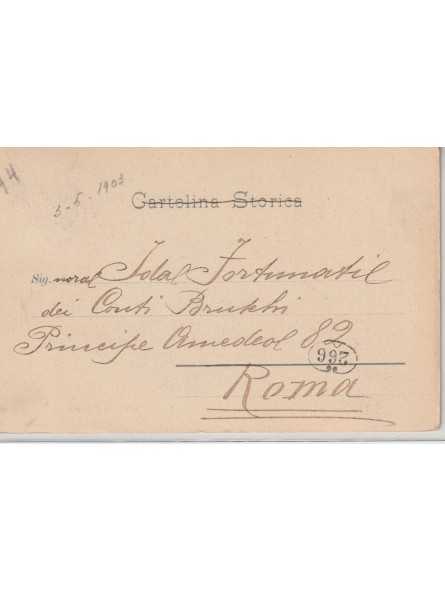 44
3-5-1903
Cartolina Storica
Sig.nora Ida Fortunati
dei Conti Brukhi
Principe Amedeo 82
266
Roma